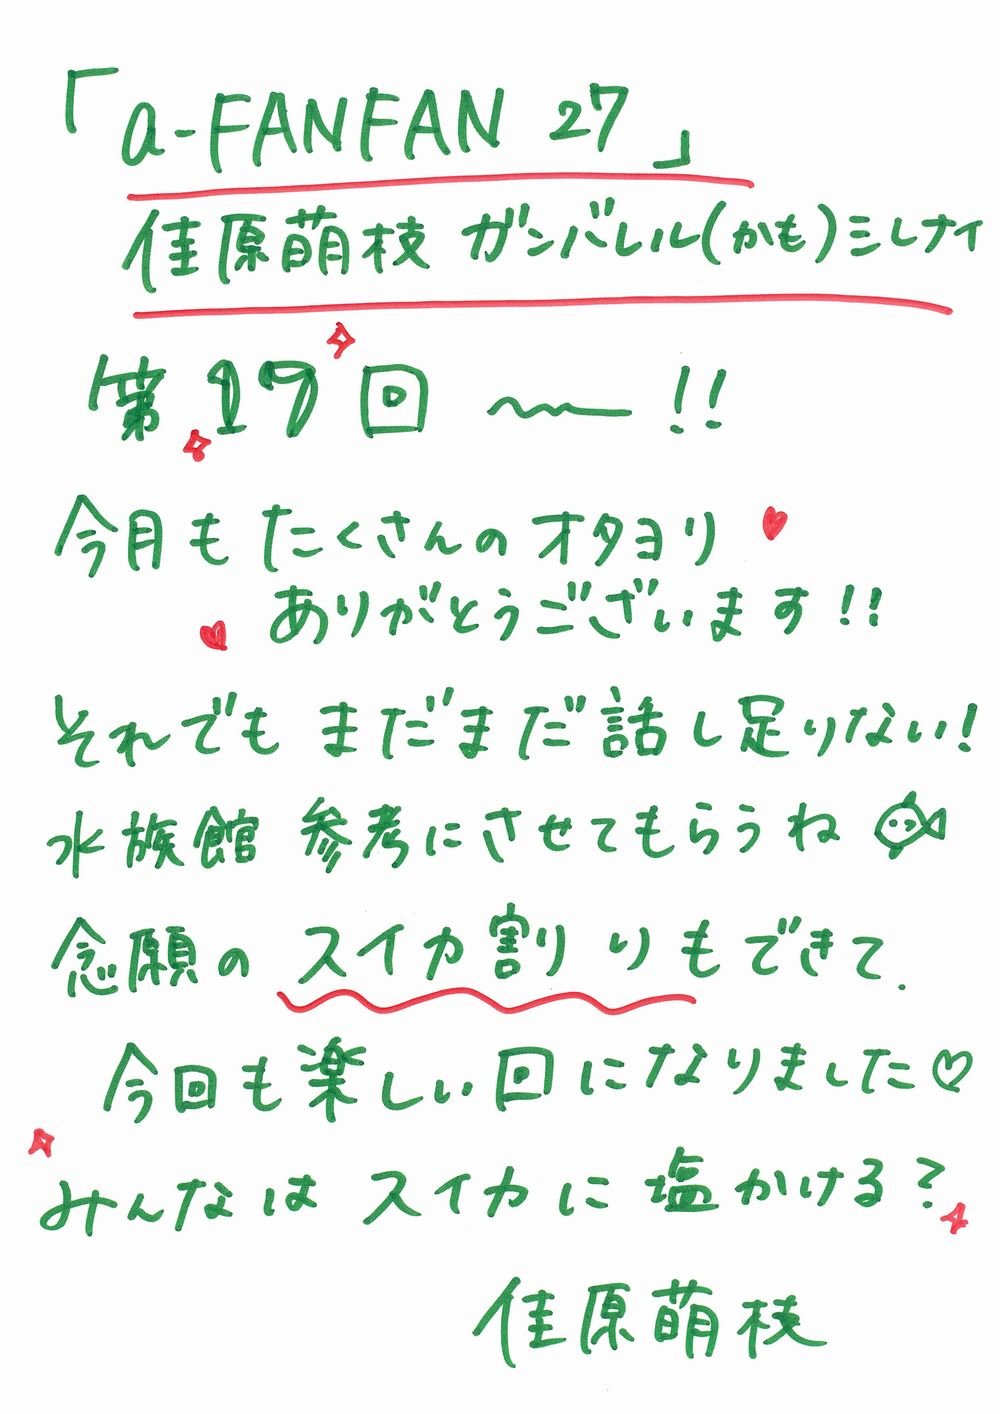 「a-FANFAN 27」
佳原萌枝 ガンバレル(かも)シレナイ
第17回 〜!!
今月も たくさんの オタヨリ
ありがとうございます!!
それでも まだまだ 話し足りない!
水族館 参考にさせてもらうね
念願の スイカ割りもできて.
今回も楽しい回になりました♡
みんなは スイカに 塩かける?
佳原萌枝